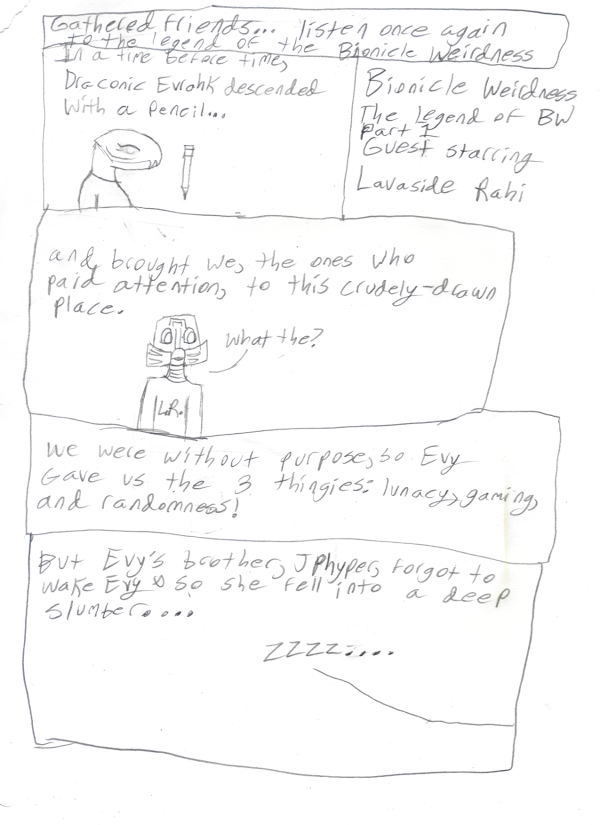 Gathered friends... listen once again
to the legend of the Bionicle Weirdness
In a time before time,
Draconic Evrahk descended
With a pencil...
Bionicle Weirdness
The Legend of BW
Part 1
Guest starring
Lavaside Rahi
and, brought we, the ones who
paid attention, to this crudely-drawn
place.
What the?
L.R.
We were without purpose, so Evy
Gave us the 3 thingies: lunacy, gaming,
and randomness!
But Evy's brother, JPhyper, forgot to
wake Evy so she fell into a deep
slumber....
ZZZZ....